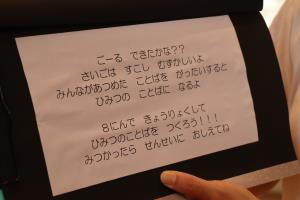 ごーる できたかな??
さいごは すこし むずかしいよ
みんながあつめた ことばを がったいすると
ひみつの ことばに なるよ
8にんで きょうりょくして
ひみつのことばを つくろう!!!
みつかったら せんせいに おしえてね